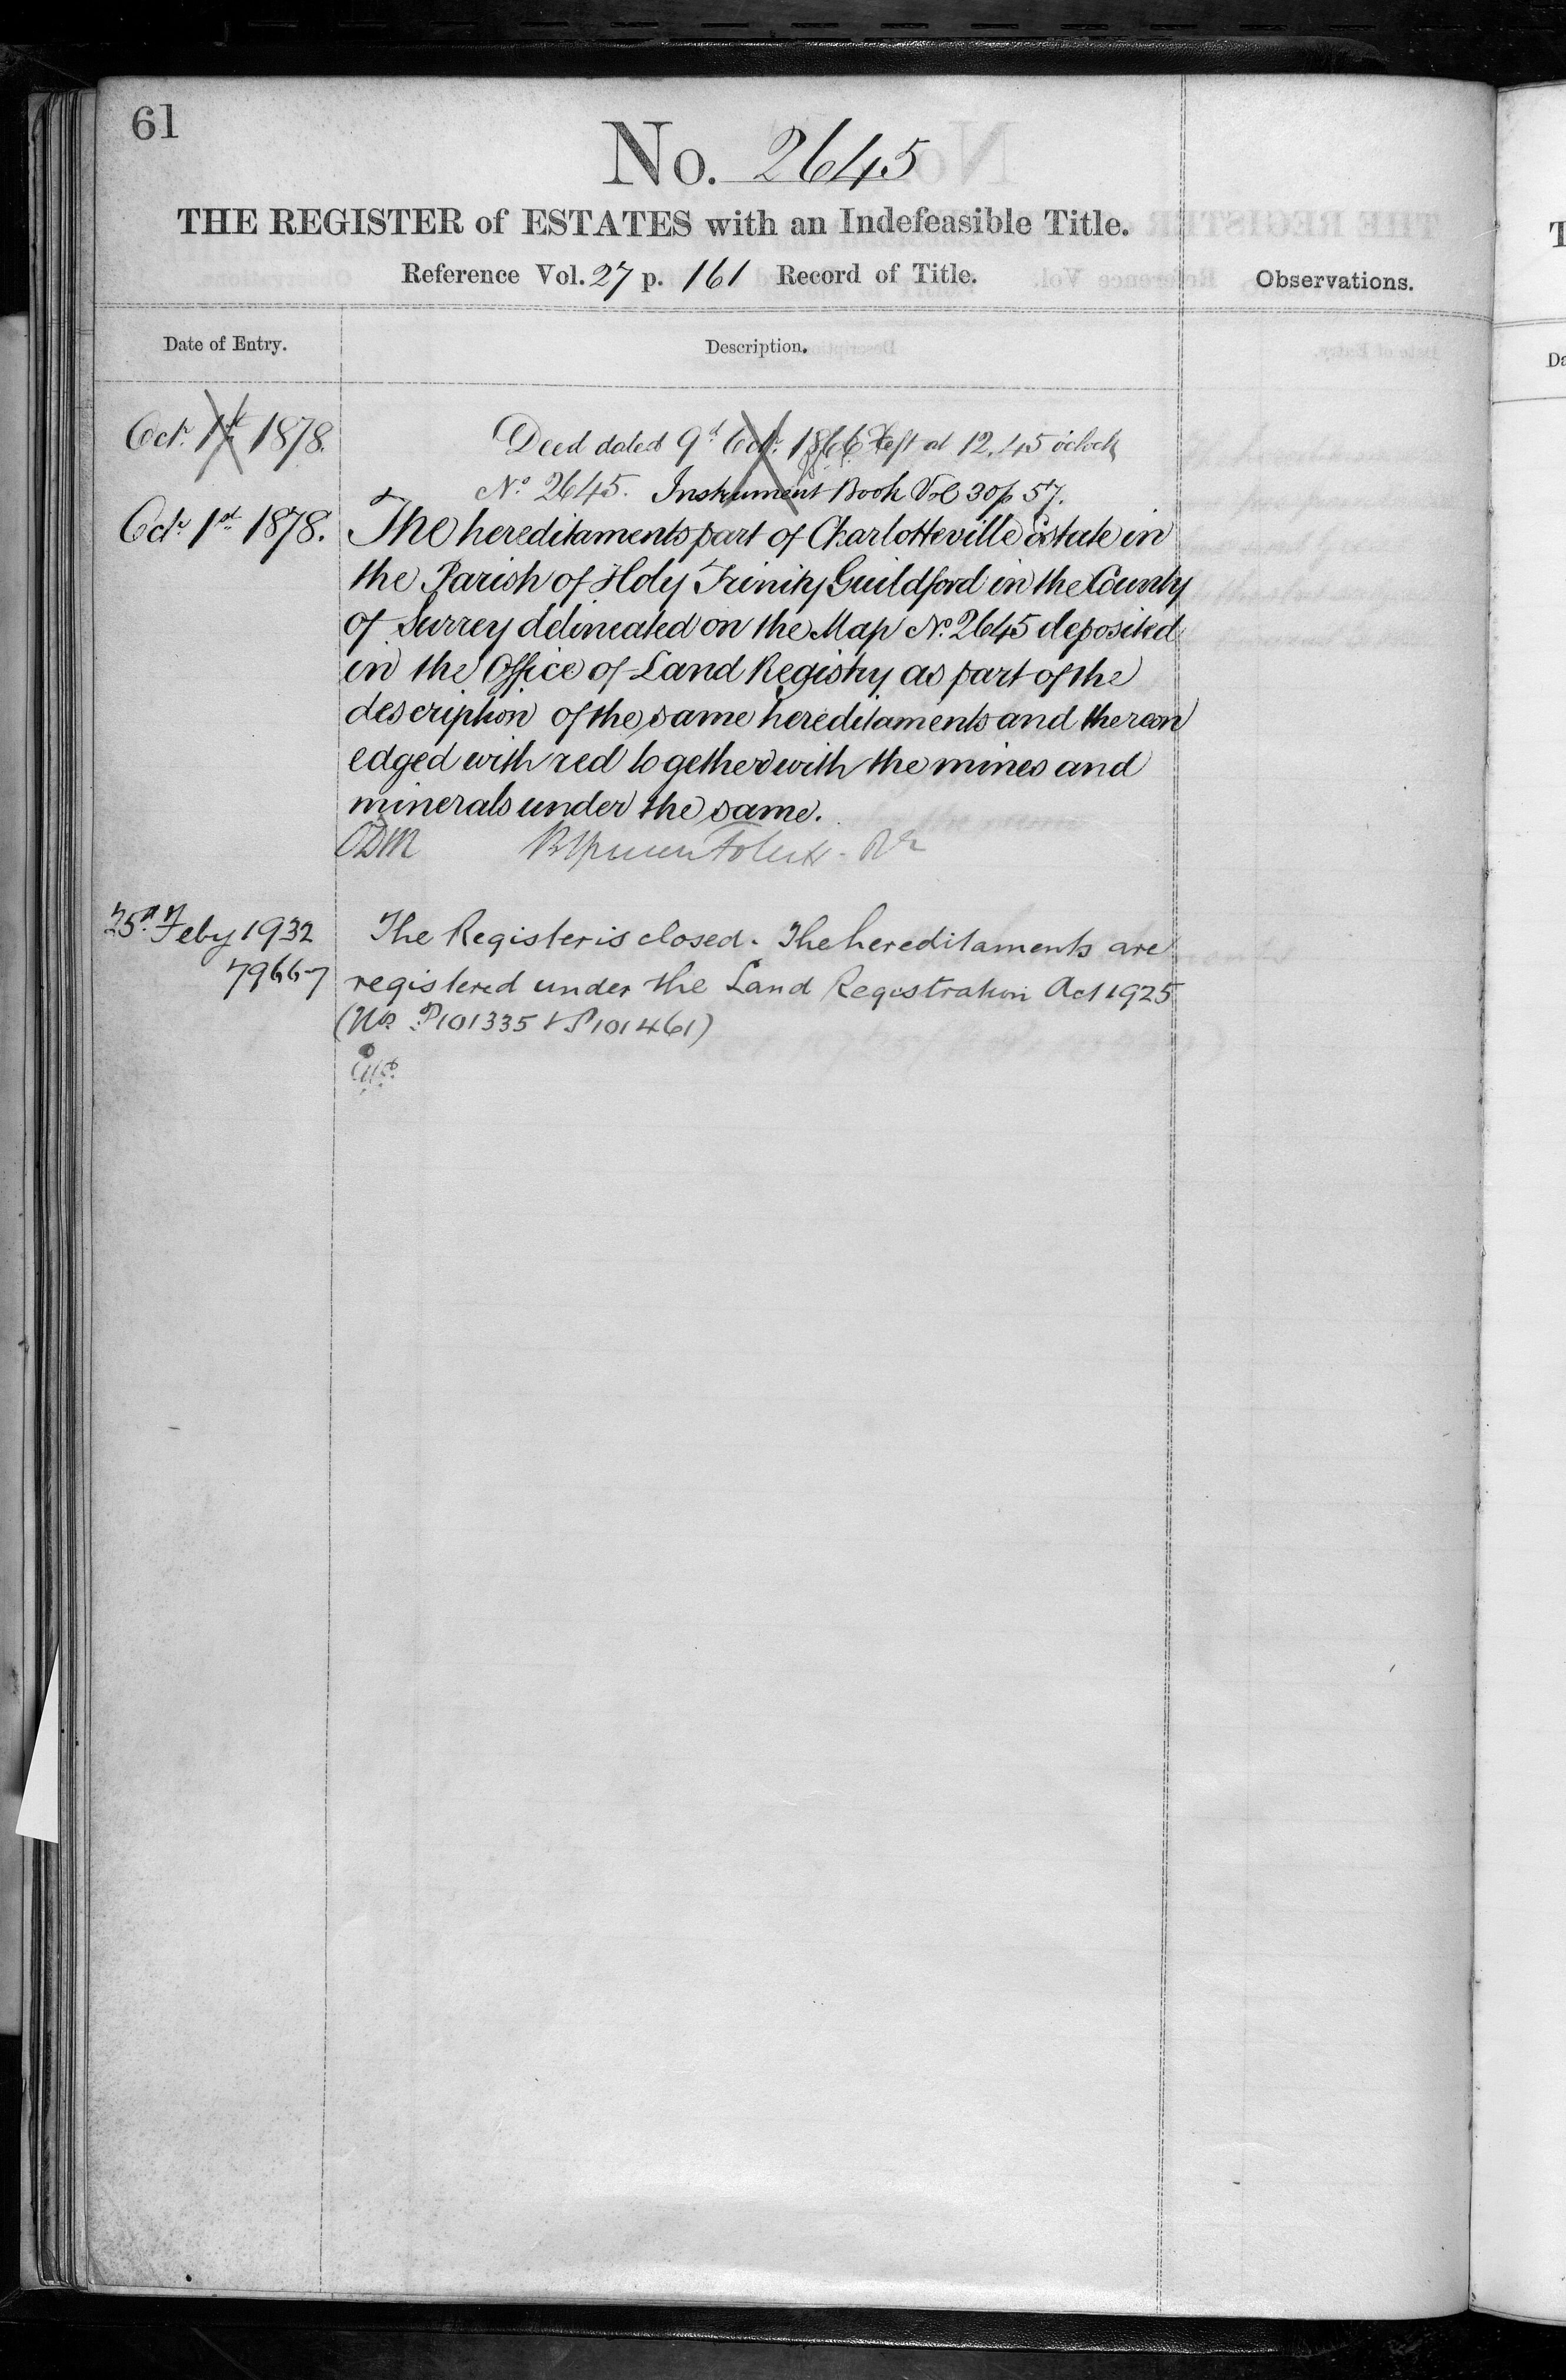 61
No. 2645
THE REGISTER of ESTATES with an Indefeasible Title.
Reference Vol. 27 p. 161 Record of Title.
Observations.
Date of Entry.
Description.
Oct. 1st 1878.
Deed dated 9th Oct. 1866 left at 12.45 o'clock
No. 2645. Instrument Book Vol 30 p 57.
Oct. 1st 1878.
The hereditaments part of Charlotteville Estate in
the Parish of Holy Trinity Guildford in the County
of Surrey delineated on the Map No. 2645 deposited
in the Office of Land Registry as part of the
description of the same hereditaments and thereon
edged with red together with the mines and
minerals under the same.
25th Feby 1932
79667
The Register is closed. The hereditaments are
registered under the Land Registration Act 1925
(Nos. P101335 & P101461)